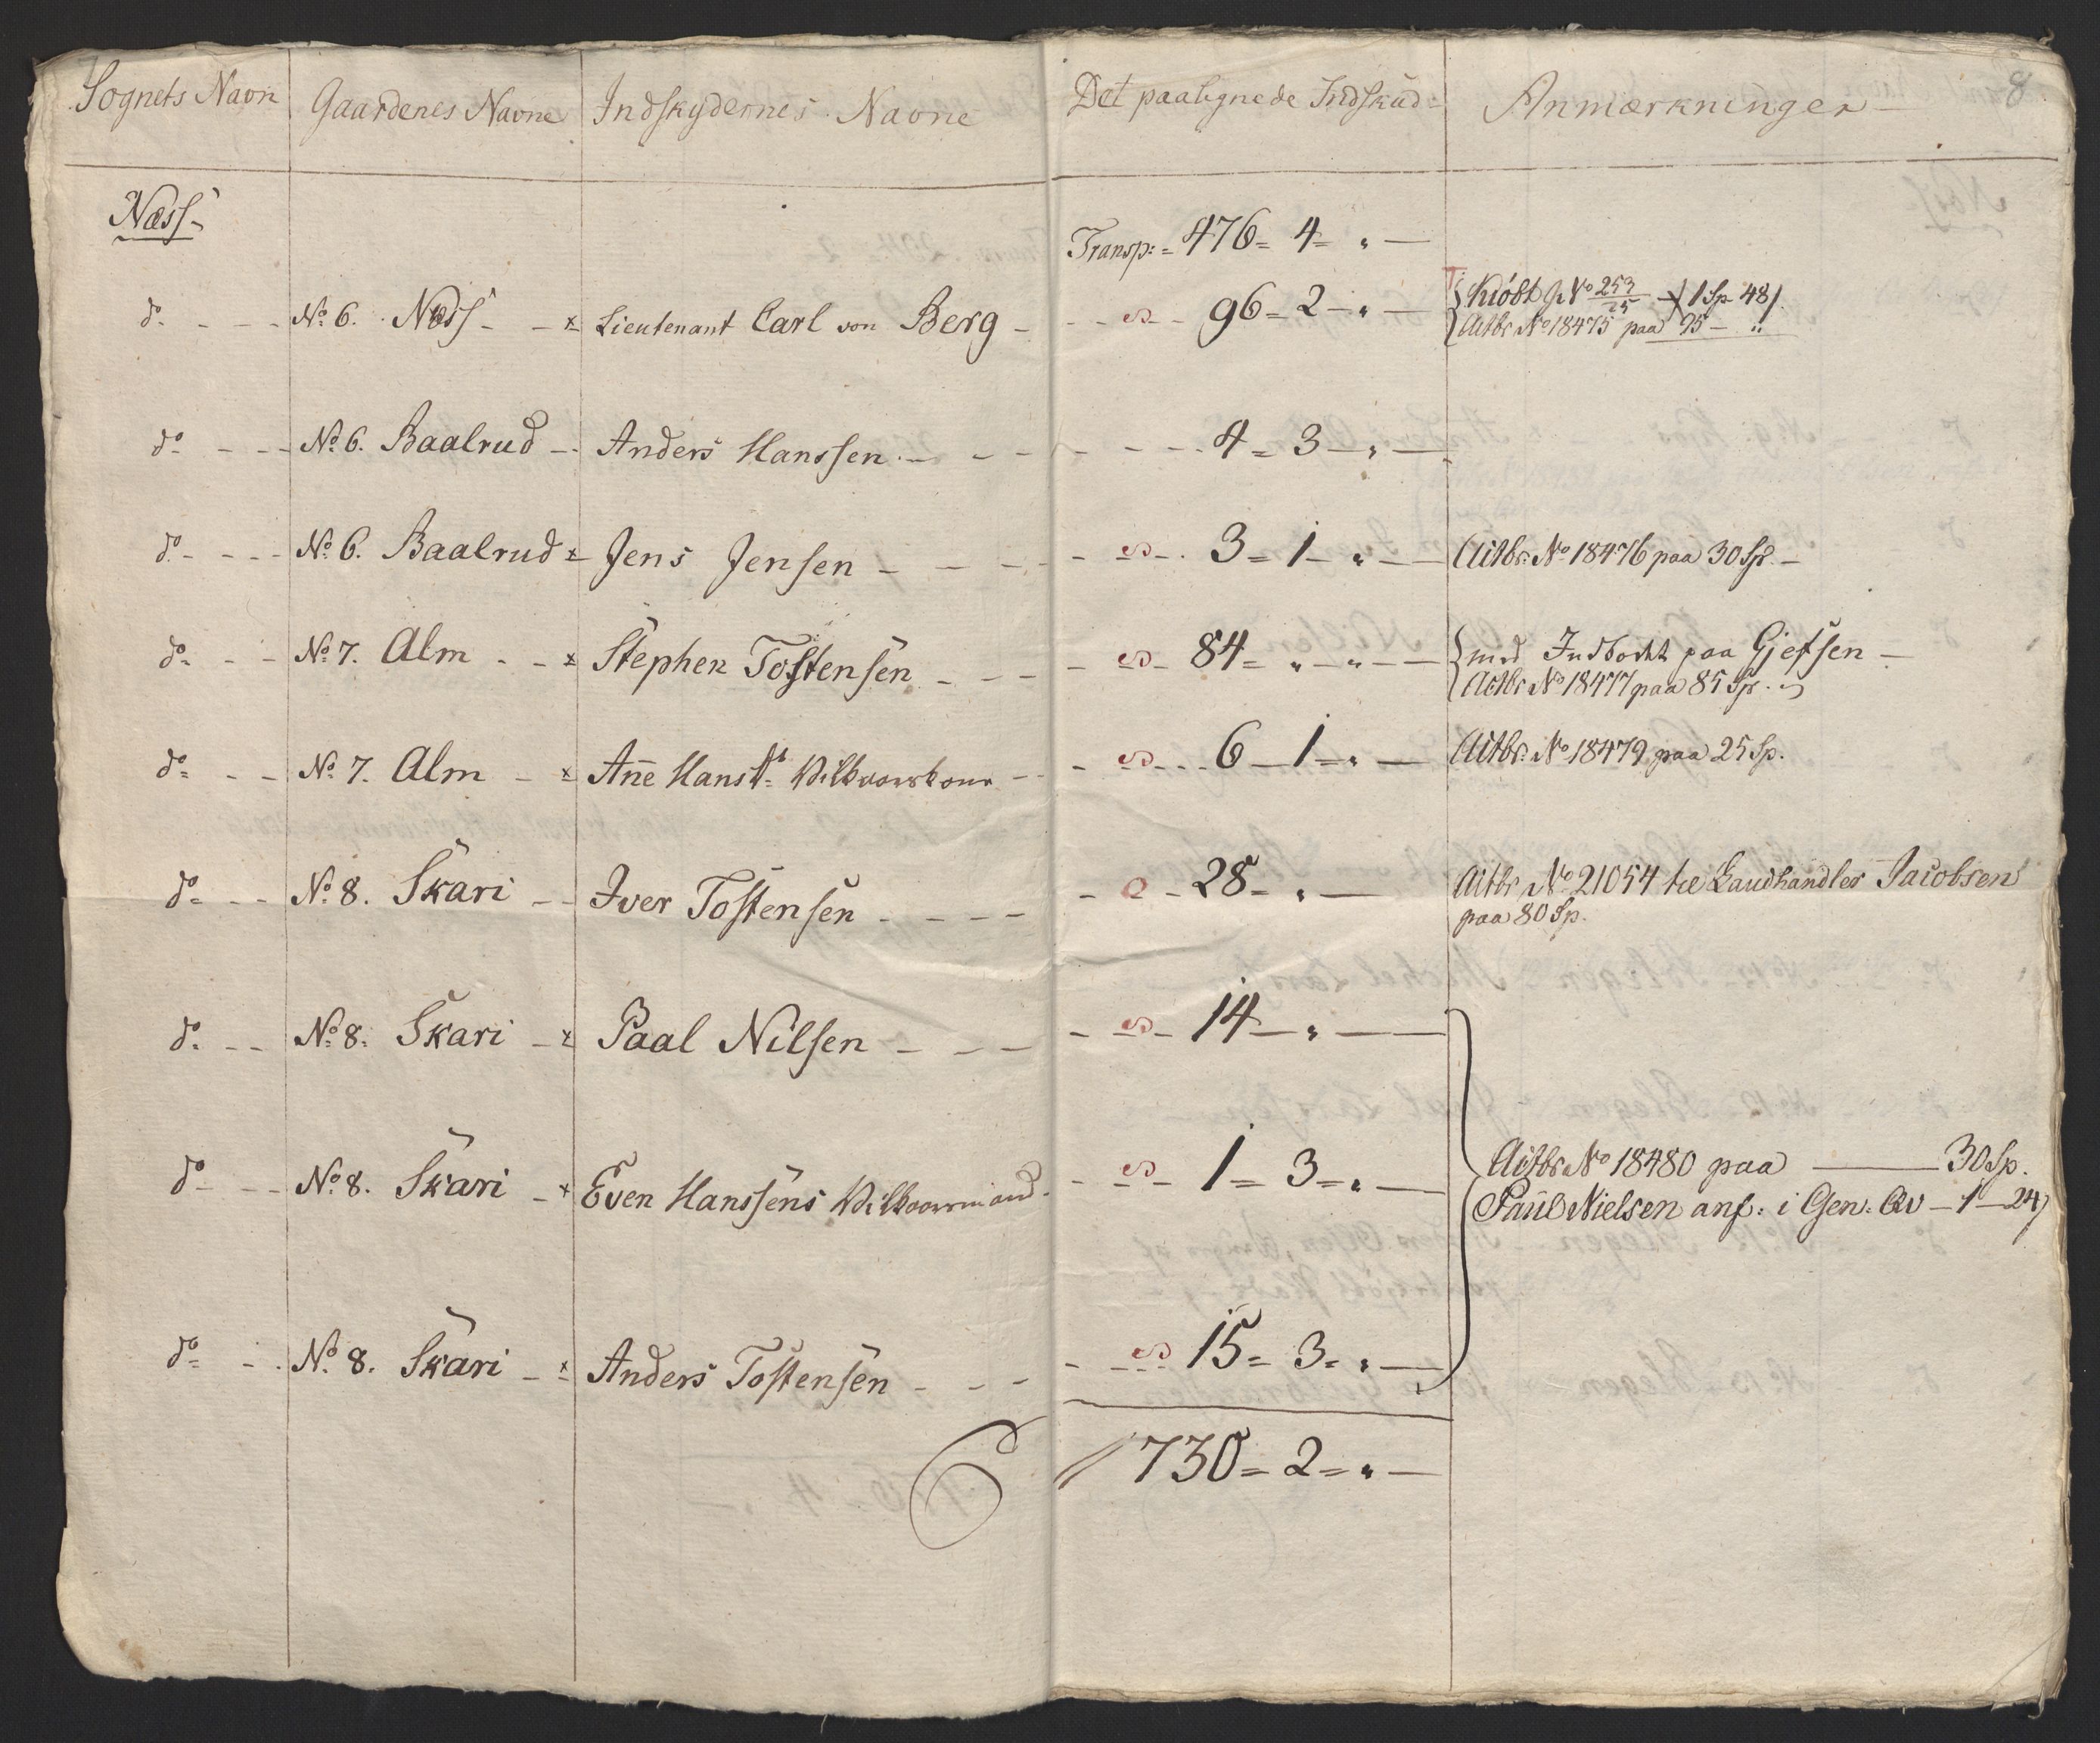 8
Sognets Navn Gaardenes Navne Indskydernes Navne Det paalignede Indskud Anmærkninger
Næss
Transp: 476 = 4 = "
d° N° 6. Næss x Lieutenant Carl von Berg 96 = 2 - " Kiöbt N° 253/25 1 Sp 48 ſ.
Actbr N° 18475 paa 95 - "
d° N° 6. Baalrud Anders Hanssen 4 = 3 - "
d° N° 6. Baalrud x Jens Jensen 3 = 1 - " Actbr: N° 18476 paa 30 Sp.
d° N° 7. Alm x Stephen Tostensen 84 = " - " med Indbodt paa Gjefsen
Actbr N° 18477 paa 85 Sp.
d° N° 7. Alm x Añe Hansdt. Vilkaarskone 6 - 1 - " Actbr: N° 18479 paa 25 Sp.
d° N° 8. Skari Iver Tostensen 28 - " Actbr N° 21054 til Landhandler Jacobsen
paa 80 Sp.
d° N° 8. Skari x Paal Nilsen 14 - "
d° N° 8. Skari x Even Hanssens Vilkaarmand 1 = 3 - " Actbr N° 18480 paa 30 Sp.
Paul Nielsen anf: i Gen: Qv - 1 - 24 ſ
d° N° 8. Skari x Anders Tostensen 15 = 3 = "
730 = 2 = "